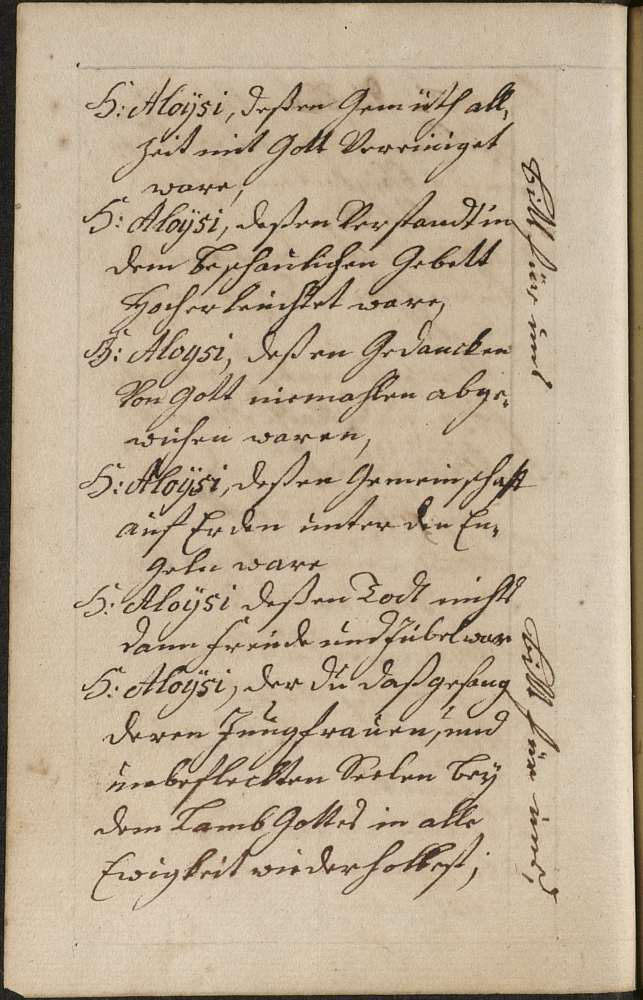 H: Aloÿsi, deßen Gemüth all-
zeit mit Gott Vereiniget
ware,
H: Aloÿsi, deßen Verstandt in
dem beschaulichen Gebett
Hocherleuchtet ware,
H: Aloysi, deßen Gedancken
Von Gott niemahlen abge-
wichen waren,
H: Aloÿsi, deßen Gemeinschaft
auf Erden unter den En-
geln ware
H: Aloÿsi deßen Todt nichts
dann Freüde und Jubel war
H: Aloÿsi, der du daß gesang
deren Jungfrauen, und
unbefleckten Seelen beÿ
dem Lamb Gottes in alle
Ewigkeit wiederhollest;
bitt für uns
bitt für uns,